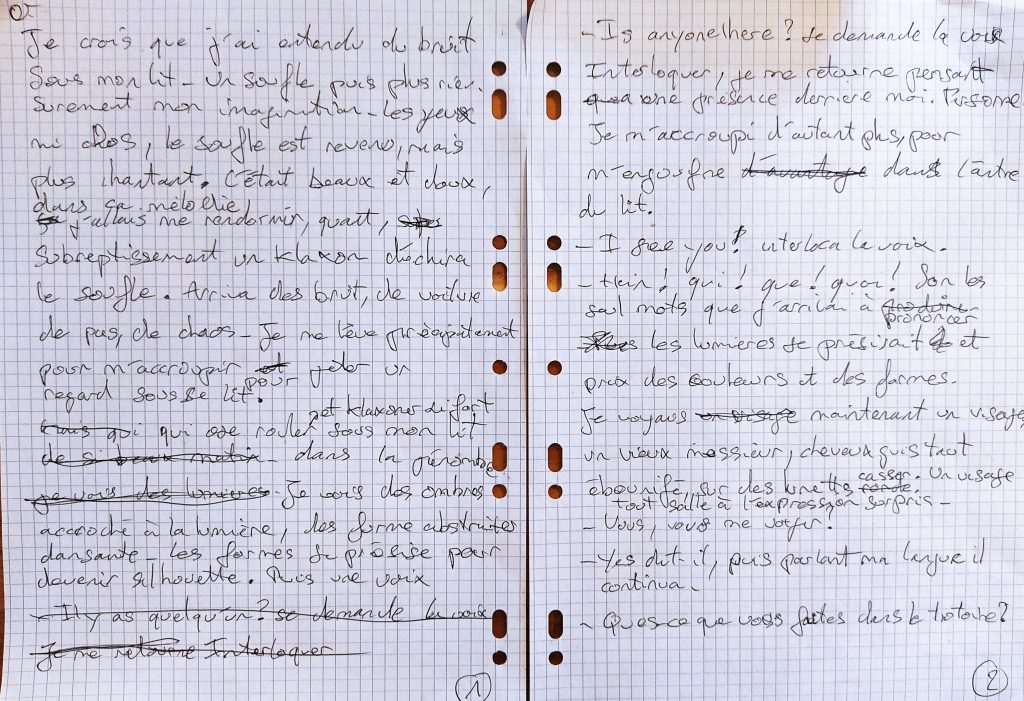 Je crois que j'ai entendu du bruit
sous mon lit - un soufle, puis plus rien.
Surement mon imagination - Les yeux
mi clos, le soufle est reveno, mais
plus chantant. C'était beaux et doux,
dans ça mélodie,
j'allais me rendormir, quant,
Subreptissement un klaxon déchira
le soufle. Arriva des bruit, de voiture
de pas, de chaos - Je me lève précipitement
pour m'accroupir pour jeter un
regard sous le lit.
et klaxoner si fort
qui ose rouler sous mon lit
dans la pénombre
je vois des lumieres - Je vois des ombres
accroché à la lumière, des forme abstraites
dansante - Les formes se présise pour
devenir silhouette. Puis une voix
- Il y as quelqu'un ? se demande la voix
Je me retourne Interloquer
1
- Is anyone here ? se demande la voix
Interloquer, je me retourne pensant
a une présence derriere moi. Personne
Je m'accroupi d'autant plus, pour
m'engoufre d'avantage dans l'antre
du lit.
- I see you ! interloca la voix.
- Hein ! qui ! que ! quoi ! Son les
seul mots que j'arrivai à produire
prononcer
les lumieres se présisait et
prix des couleurs et des formes.
Je voyais un visage maintenant un visage
un vieux messieur, cheveux gris tout
ébourifé, sur des lunettes casser. Un visage
tout salle à l'expression surpris -
- Vous, vous me voyer !
- Yes dit-il, puis parlant ma langue il
continua.
- Ques-ce que vous faites dans le trotoire ?
2